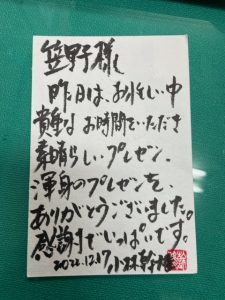 笠野様
昨日は、お忙しい中
貴重なお時間をいただき
素晴らしいプレゼン、
渾身のプレゼンを、
ありがとうございました。
感謝でいっぱいです。
2022.12.17 小林